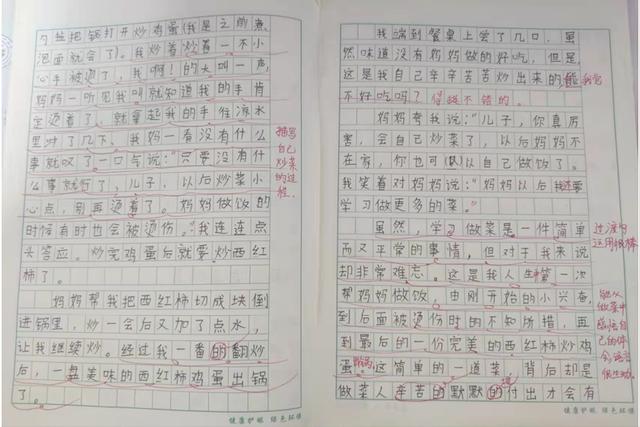 勺丝把锅打开炒鸡蛋(我是之前煮
泡面就会了)。我炒着炒着一不小
心手被烫了,我啊!的大叫一声,
妈妈一听见我叫就知道我的手肯
定烫着了,就拿起我的手往凉水
里对了几下。我妈一看没有什么
事就叹了一口气说:"只要没有什
么事就行了,儿子,以后炒菜小
心点,别再烫着了。妈妈做饭的
时候有时也会被烫伤。"我连连点
头答应。炒完鸡蛋后就要炒西红
柿了。
妈妈帮我把西红柿切成块倒
进锅里,炒一会后又加了点水,
让我继续炒。经过我一番的翻炒
后,一盘美味的西红柿鸡蛋出锅
了。
描写
自己
炒菜
的过
程。
健康护眼 绿色环保
我端到餐桌上尝了几口,虽
然味道没有妈妈做的好吃,但是,
这是我自己辛辛苦苦炒出来的能
不好吃吗?得挺不错的。
妈妈夸我说:"儿子,你真厉
害,会自己炒菜了,以后妈妈不
在家,你也可以自己做饭了。"
我笑着对妈妈说:"妈妈以后我还要
学习做更多的菜。"
虽然,学习做菜是一件简单
而又平常的事情,但对于我来说
却非常难忘。这是我人生第一次
帮妈妈做饭。由刚开始的小兴奋,
到后面被烫伤时的不知所措,再
到最后的一份完美的西红柿炒鸡
蛋。这简单的一道菜,背后却是
做菜人辛苦的默默的付出才会有
过渡句
运用很棒
能从
做菜中
感悟自
己的体
会,语言
很生动。
健康护眼 绿色环保